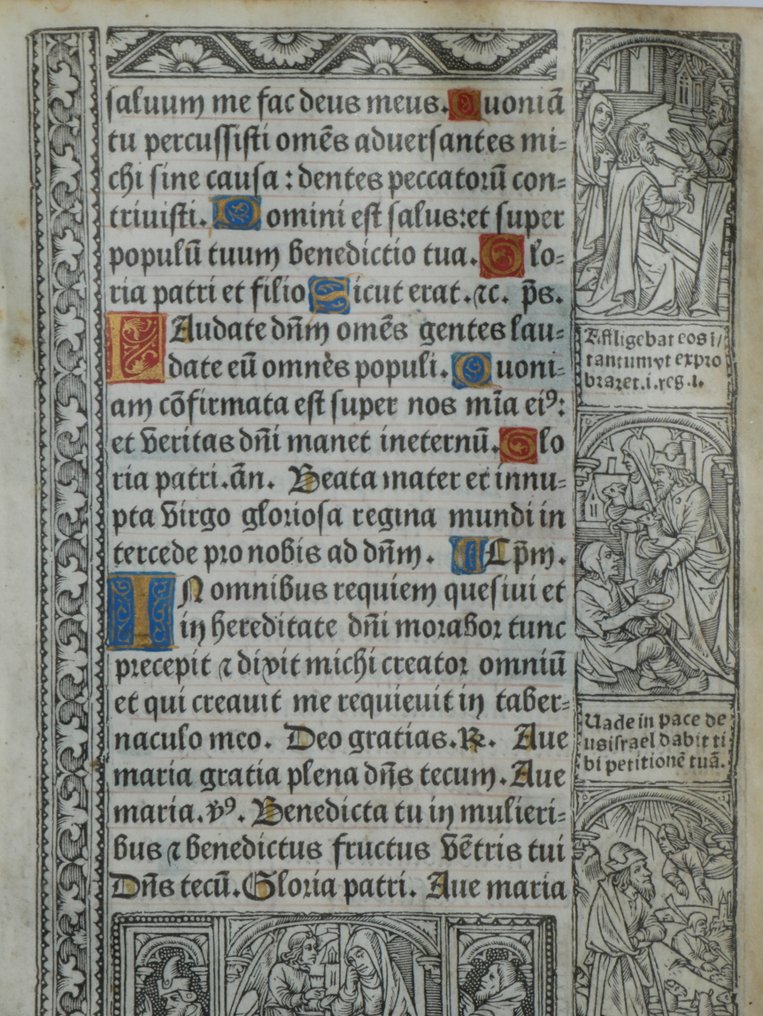 saluum me fac deus meus. Quoniā
tu percussisti omēs aduersantes mi-
chi sine causa : dentes peccatorū con-
triuisti. Domini est salus: et super
populū tuum benedictio tua. Glo-
ria patri et filio Sicut erat. ⁊c. p̄s.
LAudate dn̄m omēs gentes lau-
date eū omnes populi. Quoni-
am cōfirmata est super nos mīa eiꝰ:
et veritas dn̄i manet ineternū. Glo
ria patri. ān. Beata mater et innu-
pta virgo gloriosa regina mundi in
tercede pro nobis ad dn̄m. Lp̄m.
IN omnibus requiem quesiui et
in hereditate dn̄i morabor tunc
precepit ⁊ dixit michi creator omniū
et qui creauit me requieuit in taber-
naculo meo. Deo gratias. ℟. Aue
maria gratia plena dn̄s tecum. Aue
maria. v̄ꝰ. Benedicta tu in mulieri-
bus ⁊ benedictus fructus vētris tui
Dn̄s tecū. Gloria patri. Aue maria
Affligebat eos i/
tantum vt expro
braret. i. reg. i.
Uade in pace de
us israel dabit ti
bi petitionē tuā.